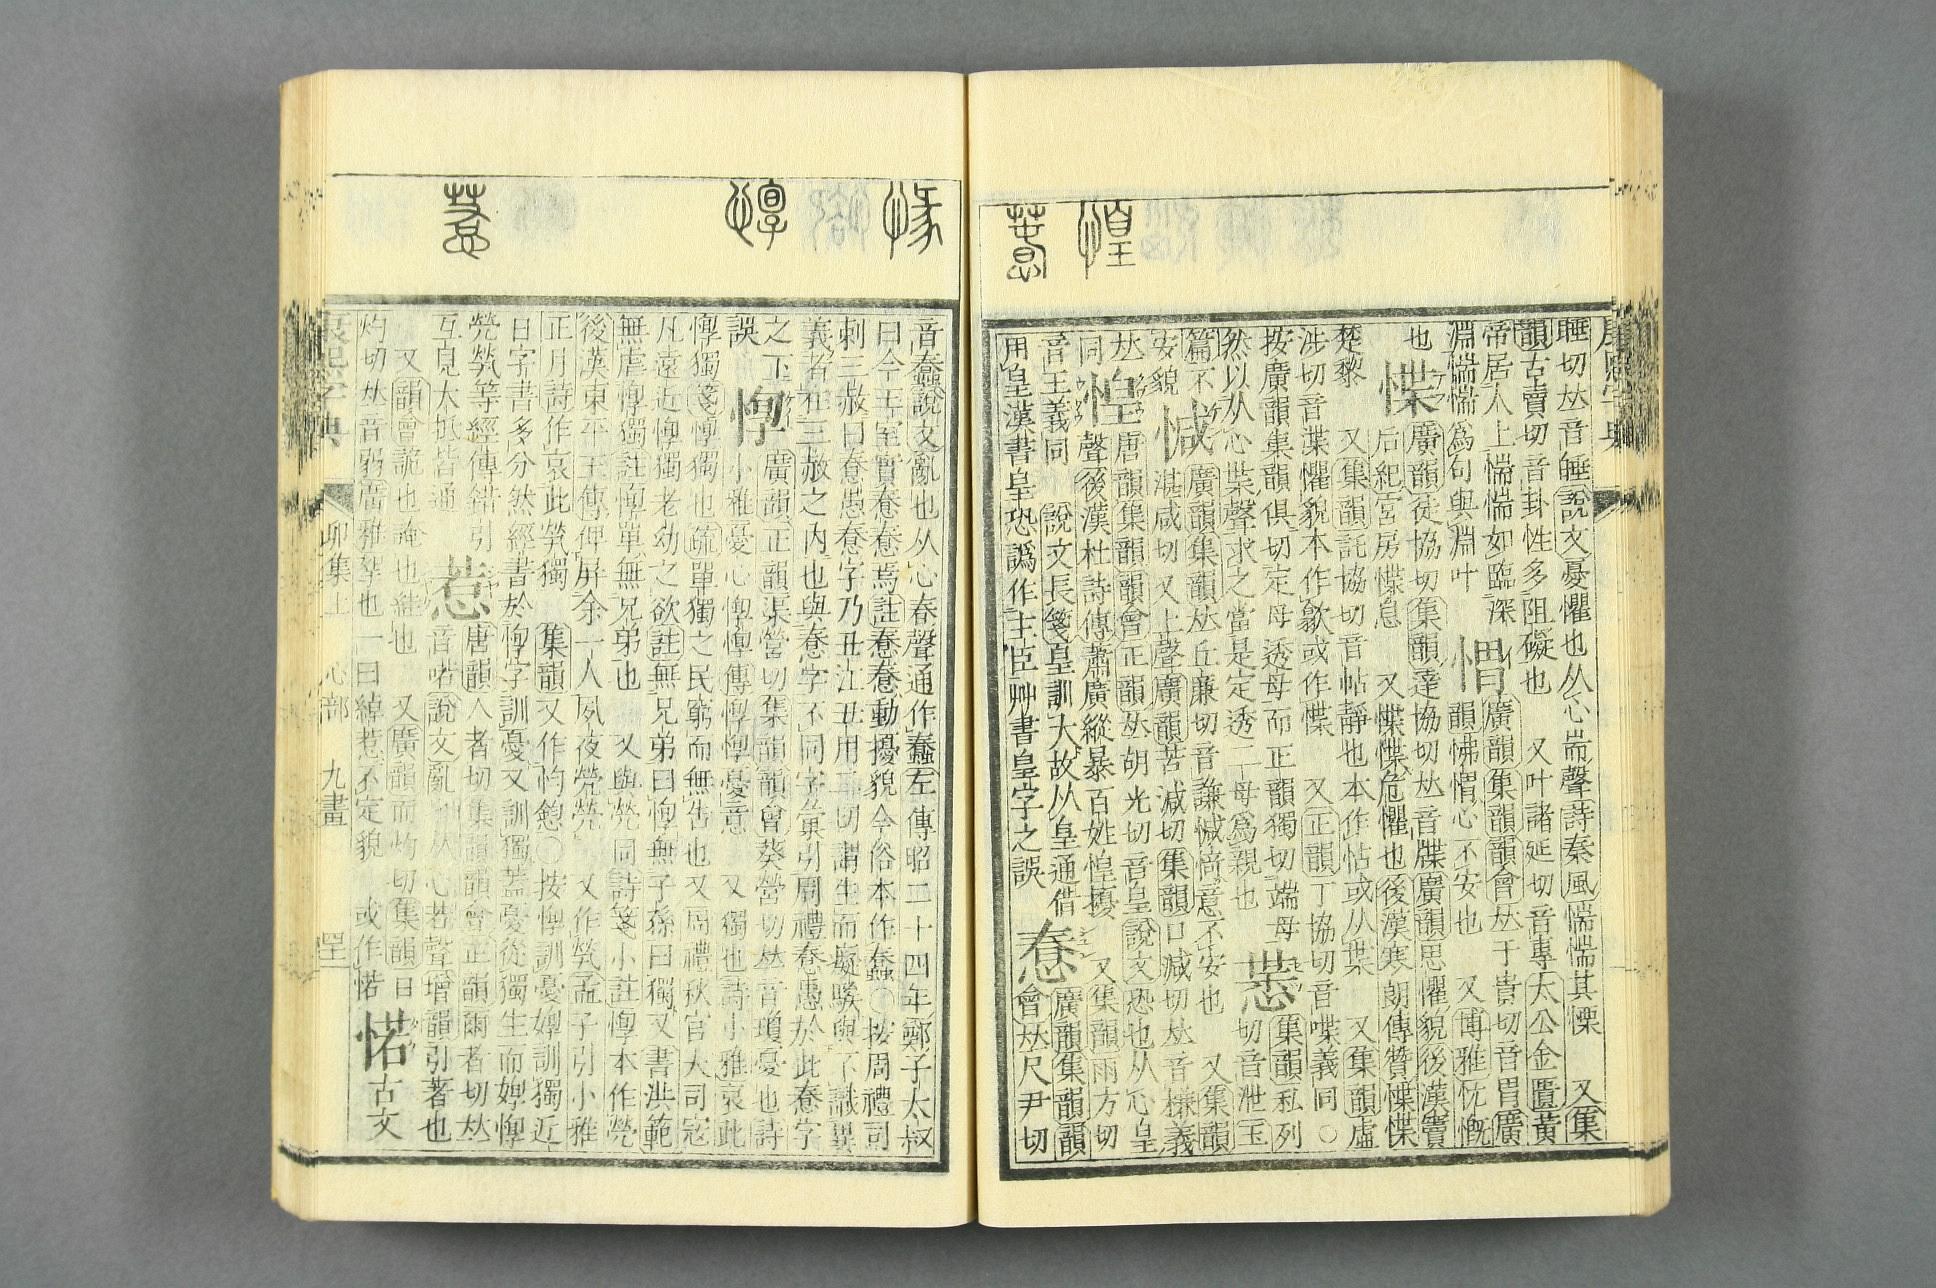 睡切𠀤音睡說文憂懼也从心耑聲詩秦風惴惴其慄 又集
韻古賣切音卦性多阻礙也 又叶諸延切音專太公金匱黃
帝居人上惴惴如臨深淵 㥜廣韻集韻韻會𠀤于貴切音胃廣
淵惴惴爲句與淵叶 韻怫㥜心不安也 又博雅忼慨
也 惵廣韻徒協切集韻達協切𠀤音牒廣韻思懼貌後漢竇
后紀宮房惵息 又惵惵危懼也後漢寒朗傳贊惵惵
楚黎 又集韻託協切音帖靜也本作怗或从枼 又集韻虛
涉切音渫懼貌本作歙或作惵 又正韻丁協切音喋義同○
按廣韻集韻俱切定母透母而正韻獨切端母 𢜜集韻私列
然以从心枼聲求之當是定透二母爲親也 切音泄玉
篇不 㦗廣韻集韻𠀤丘廉切音謙㦗㤿意不安也 又集韻
安貌 湛咸切 又上聲廣韻苦減切集韻口減切𠀤音槏義
同 惶唐韻集韻韻會正韻𠀤胡光切音皇說文恐也从心皇
聲後漢杜詩傳蕭廣縱暴百姓惶擾 又集韻雨方切
音王義同 說文長箋皇訓大故从皇通借 惷廣韻集韻韻
用皇漢書皇恐譌作主臣艸書皇字之誤 會𠀤尺尹切
音蠢說文亂也从心春聲通作蠢左傳昭二十四年鄭子太叔
曰今王室實惷惷焉註惷惷動擾貌今俗本作蠢○按周禮司
刺三赦曰惷愚惷字乃丑江丑用二切謂生而癡騃與不識異
義者 在三赦之內也與惷字不同字彙引周禮惷愚於此惷字
之下 惸廣韻正韻渠營切集韻韻會葵營切𠀤音瓊憂也詩
誤 小雅憂心惸惸傳惸惸憂意 又獨也詩小雅哀此
惸獨箋惸獨也疏單獨之民窮而無告也又周禮秋官大司寇
凡遠近惸獨老幼之欲註無兄弟曰惸無子孫曰獨又書洪範
無虐惸獨註惸單無兄弟也 又與煢同詩箋小註惸本作煢
後漢東平王傳俾屏余一人夙夜煢煢 又作㷀孟子引小雅
正月詩作哀此煢獨 集韻又作㣿憌○按惸訓憂嬛訓獨近
日字書多分然經書於惸字訓憂又訓獨蓋憂從獨生而㛦惸
煢㷀等經傳錯引 惹唐韻人者切集韻韻會正韻爾者切𠀤
互見大抵皆通 音喏說文亂也从心若聲增韻引著也
又韻會詭也誽也絓也 又廣韻而灼切集韻日
灼切𠀤音弱廣雅挐也一曰綽惹不定貌 或作偌 惹古文
康熙字典 卯集上 心部 九畫